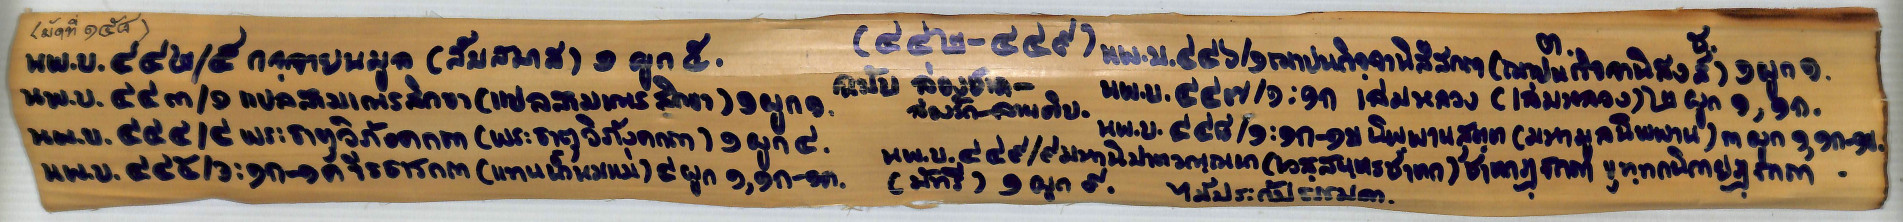 (มัดที่ ๑๕๕)
นพ.บ. ๔๔๒/๕ กจฺจายนมูล (สัมสมาส) ๑ ผูก ๕.
นพ.บ. ๔๔๓/๑ แปลสามเณรสิกขา (แปลสามเณรสิกขา) ๑ ผูก ๑.
นพ.บ. ๔๔๔/๔ พระธาตุวิภังคกถา (พระธาตุวิภังคกถา) ๑ ผูก ๔.
นพ.บ. ๔๔๕/๑:๑ก-๑ค (แทนน้ำนมแม่) ๔ ผูก ๑,๑ก-๑ค.
(๔๔๒-๔๔๙)
ฉบับ ล่องชาด-
ล่องรัก-ลานดิบ.
นพ.บ.๔๔๖/๑ ๑ ผูก ๑.
นพ.บ. ๔๔๗/๑:๑ก เสมหลวง (เสมหลวง) ๒ ผูก ๑, ๑ก.
นพ.บ. ๔๔๘/๑:๑ก-๑ข นิพฺพานสุตฺต (มหามูลนิพพาน) ๓ ผูก ๑,๑ก-๑ข.
นพ.บ.๔๔๙/๙ (เวสฺสนฺตรชาตก) ชาตกฏฺฐกถา ขุทฺทกนิกายฏฺฐกถา
(มัทรี) ๑ ผูก ๙.
ไม้ประกับธรรมดา.